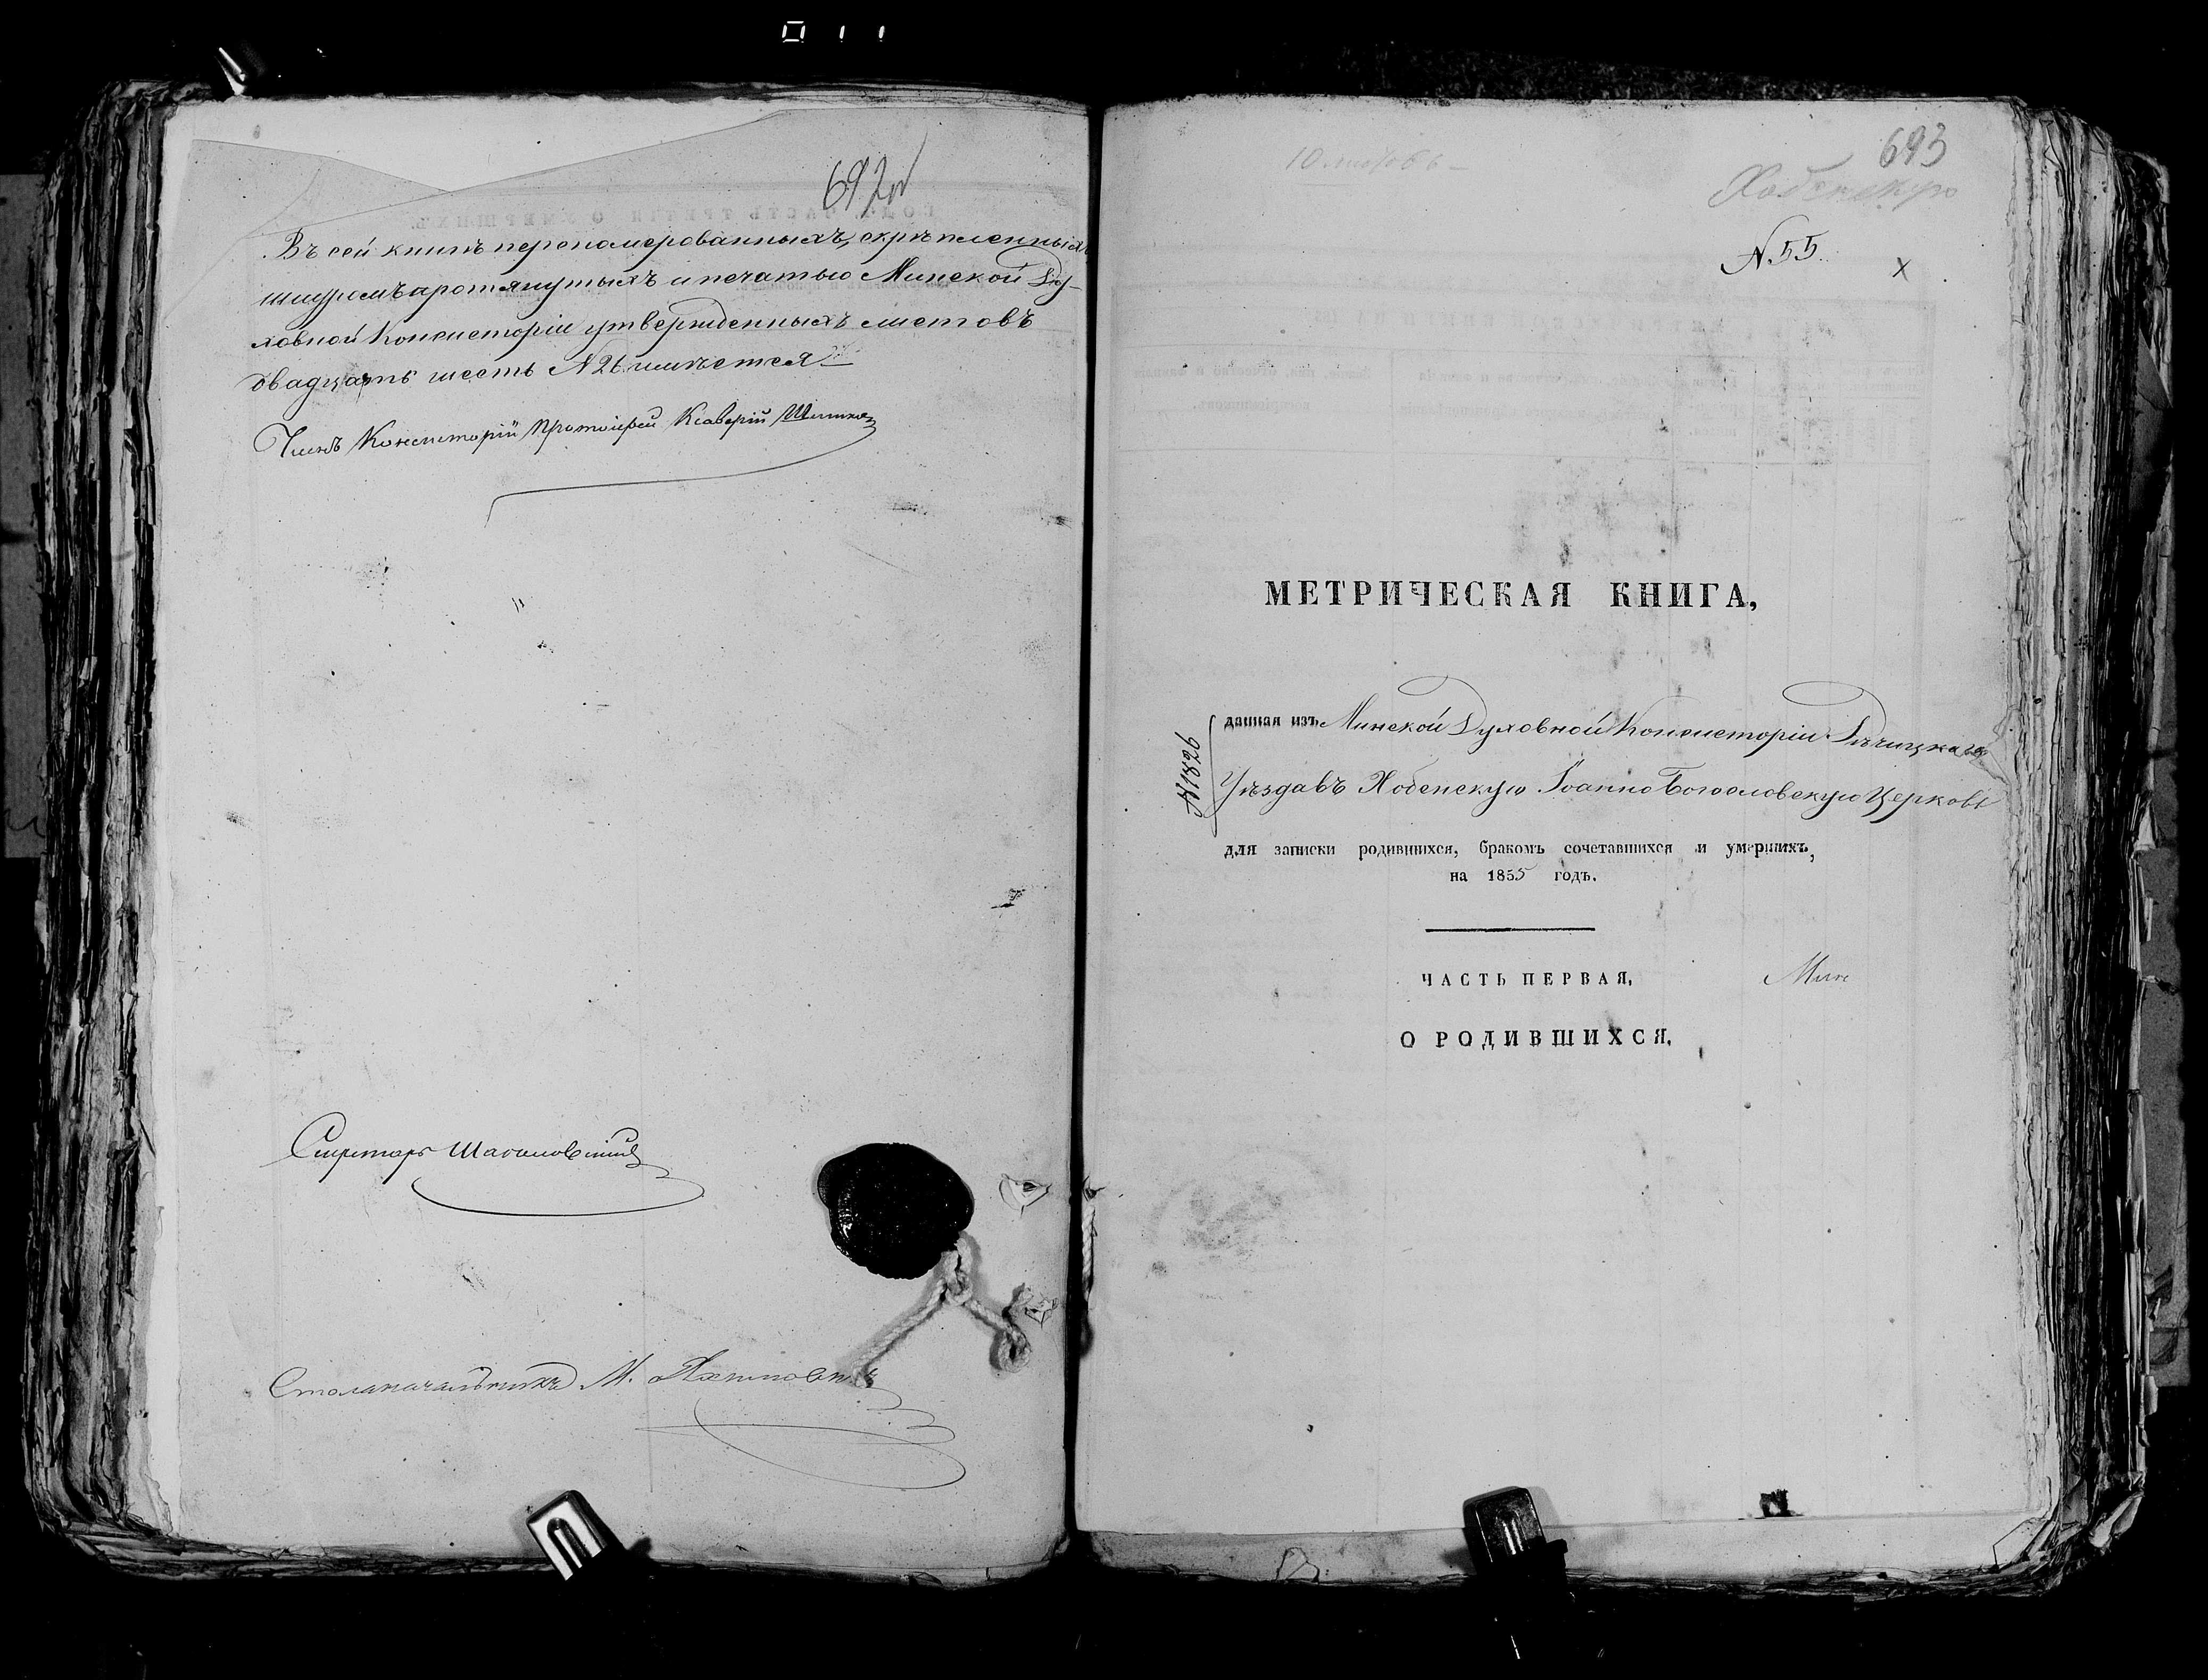 011
692
Въ сей книгѣ переномерованныхъ, скрѣпленныхъ
шнуромъ протянутыхъ и печатью Минской Ду-
ховной Консисторіи утвержденныхъ листовъ
двадцать шесть N 26 имѣется
Членъ Консисторіи Протоіерей Ксаверій
Секретарь
Столоначальникъ М.
693
10 листовъ
Хобенскую
N 55.
х
МЕТРИЧЕСКАЯ КНИГА,
N 1826
данная изъ Минской Духовной Консисторіи Рѣчицкаго
Уѣзда въ Хобенскую Іоанно Богословскую Церковь
для записки родившихся, бракомъ сочетавшихся и умершихъ,
на 1855 годъ.
ЧАСТЬ ПЕРВАЯ,
Мин
О РОДИВШИХСЯ.